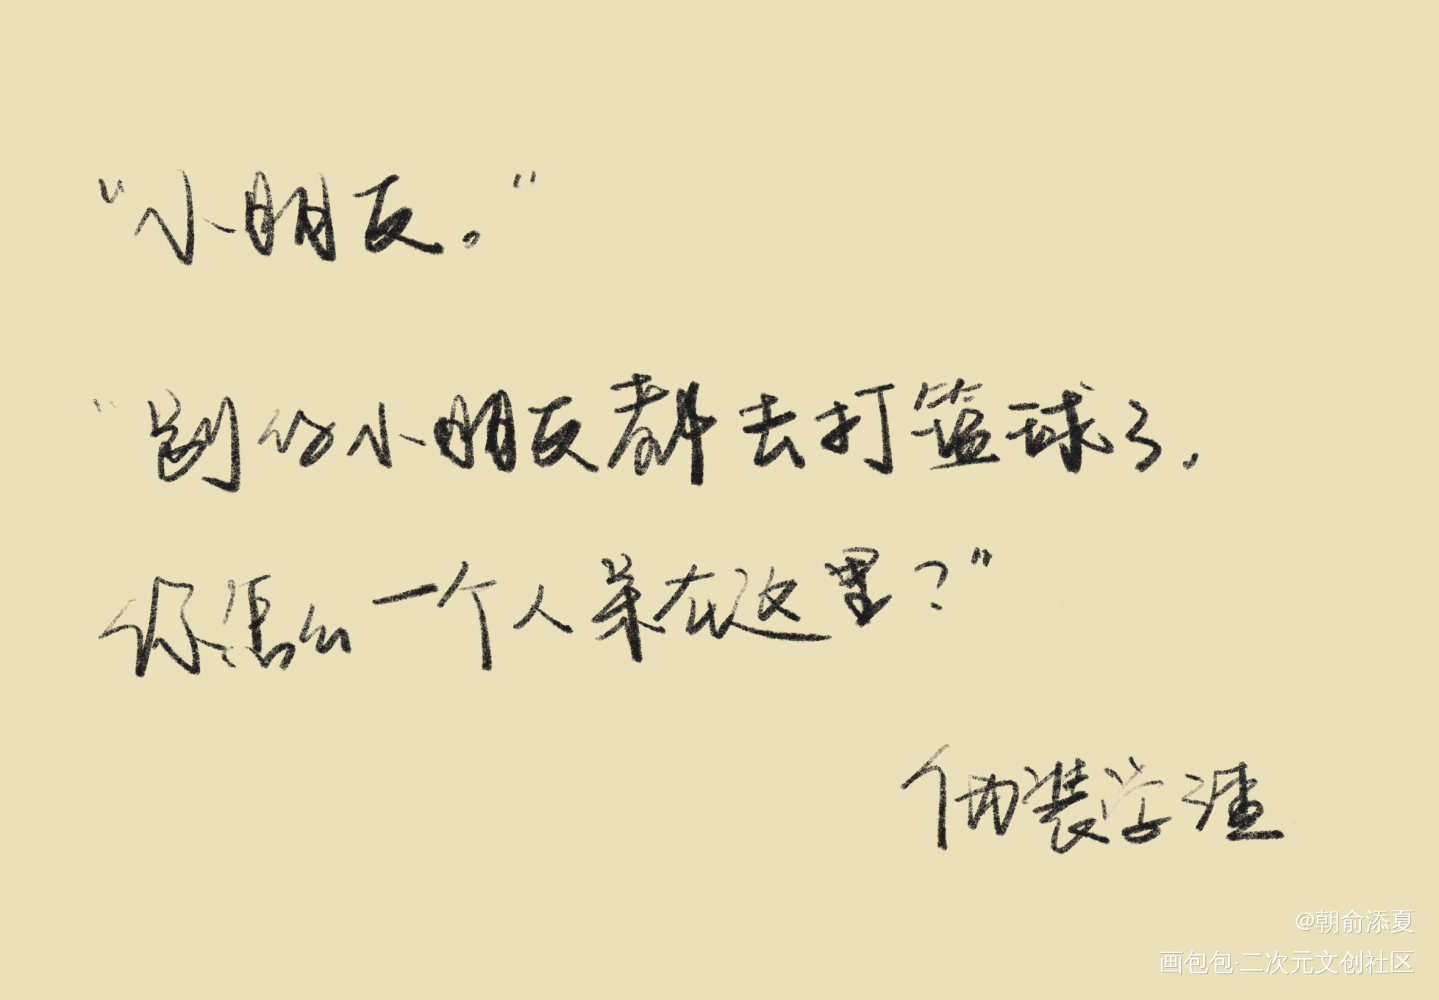 “小朋友。”
“别的小朋友都去打篮球了，
你怎么一个人呆在这里？”
伪装学渣
@朝俞添夏
画包包·二次元文创社区